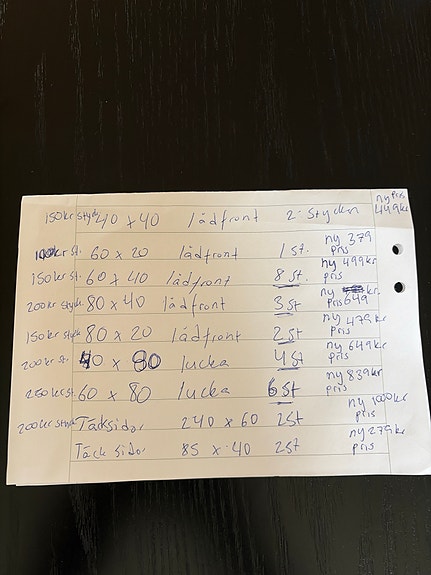 150kr styck 40 x 40 lådfront 2 stycken ny pris 449kr
100kr st. 60 x 20 lådfront 1 st. ny 379 pris
150kr st. 60 x 40 lådfront 8 st. ny 499kr pris
200kr styck 80 x 40 lådfront 3 st ny 649 pris
150kr styck 80 x 20 lådfront 2 st ny 479kr pris
200kr st. 40 x 80 lucka 4 st ny 649kr pris
250kr st. 60 x 80 lucka 6 st ny 839kr pris
200kr styck Täcksidor 240 x 60 2 st ny 1000kr pris
Täck sidor 85 x 40 2 st ny 279kr pris